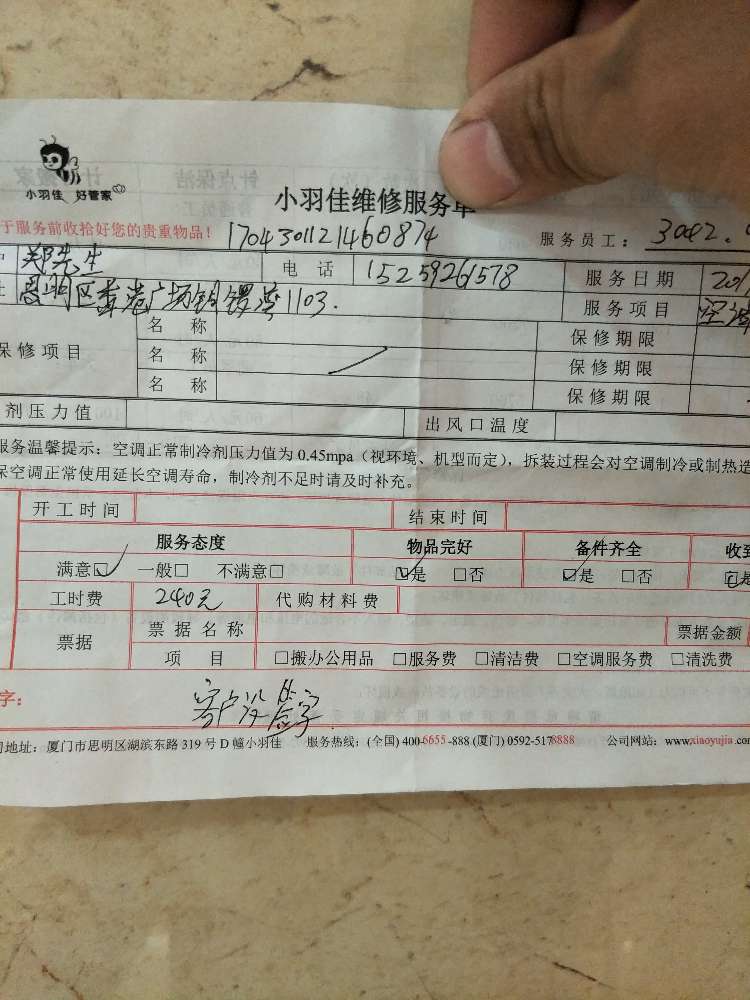 小羽佳 好管家
小羽佳维修服务单
于服务前收拾好您的贵重物品！ 1704301121460874 服务员工： 3042.
郑先生 电 话 15259261578 服务日期 201
思明区 广场 1103. 服务项目
保修项目 名 称 保修期限
名 称 保修期限
名 称 保修期限
剂压力值 出风口温度
服务温馨提示：空调正常制冷剂压力值为 0.45mpa（视环境、机型而定），拆装过程会对空调制冷或制热造
保空调正常使用延长空调寿命，制冷剂不足时请及时补充。
开工时间 结束时间
服务态度 物品完好 备件齐全 收到
满意☑ 一般□ 不满意□ ☑是 □否 ☑是 □否 ☑是
工时费 240元 代购材料费
票据 票据名称 票据金额
项 目 □搬办公用品 □服务费 □清洁费 □空调服务费 □清洗费
字：
客户 签字
司地址：厦门市思明区湖滨东路 319 号 D 幢小羽佳 服务热线：(全国) 400-6655-888 (厦门) 0592-5178888 公司网站：www.xiaoyujia.com